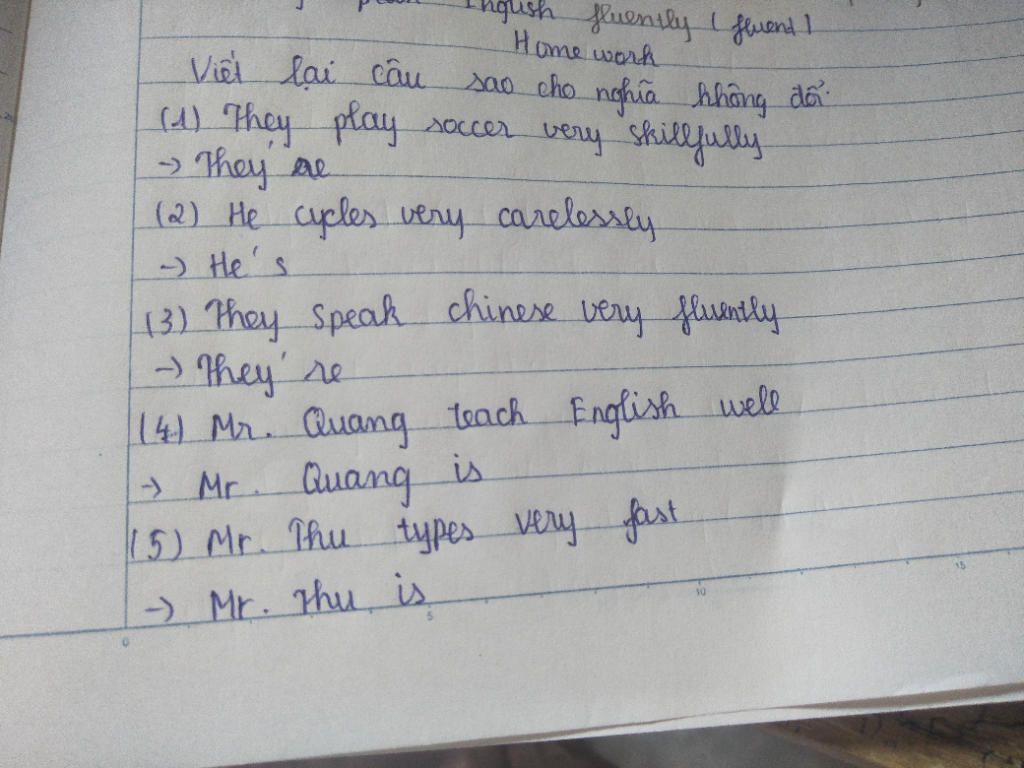 English fluently (fluent)
Home work
Viết lại câu sao cho nghĩa không đổi.
(1) They play soccer very skillfully
→ They're
(2) He cycles very carelessly
→ He's
(3) They speak chinese very fluently
→ They're
(4) Mr. Quang teach English well
→ Mr. Quang is
(5) Mr. Thu types very fast
→ Mr. Thu is
0 5 10 15